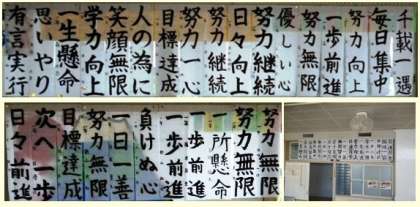 千載一遇
毎日集中
努力向上
一歩前進
努力無限
優しい心
努力継続
日々向上
努力継続
努力一心
目標達成
人の為に
笑顔無限
学力向上
一生懸命
思いやり
有言実行
努力無限
努力無限
一所懸命
一歩前進
一歩前進
負けぬ心
一日一善
努力無限
目標達成
次へ一歩
日々前進